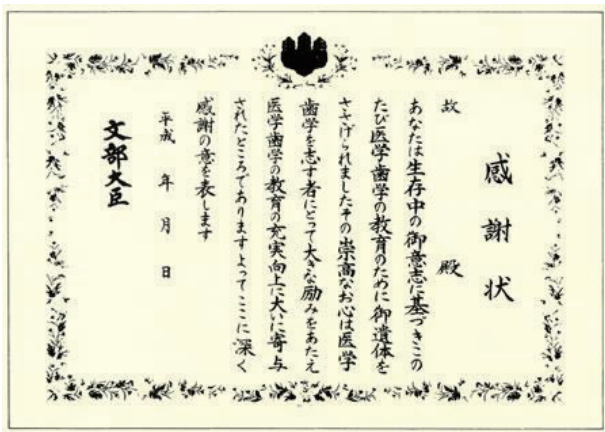 感謝状
故　　　　　殿
あなたは生存中の御意志に基づきこの
たび医学歯学の教育のために御遺体を
ささげられましたその崇高なお心は医学
歯学を志す者にとって大きな励みをあたえ
医学歯学の教育の充実向上に大いに寄与
されたところでありますよってここに深く
感謝の意を表します
平成　年　月　日
文部大臣